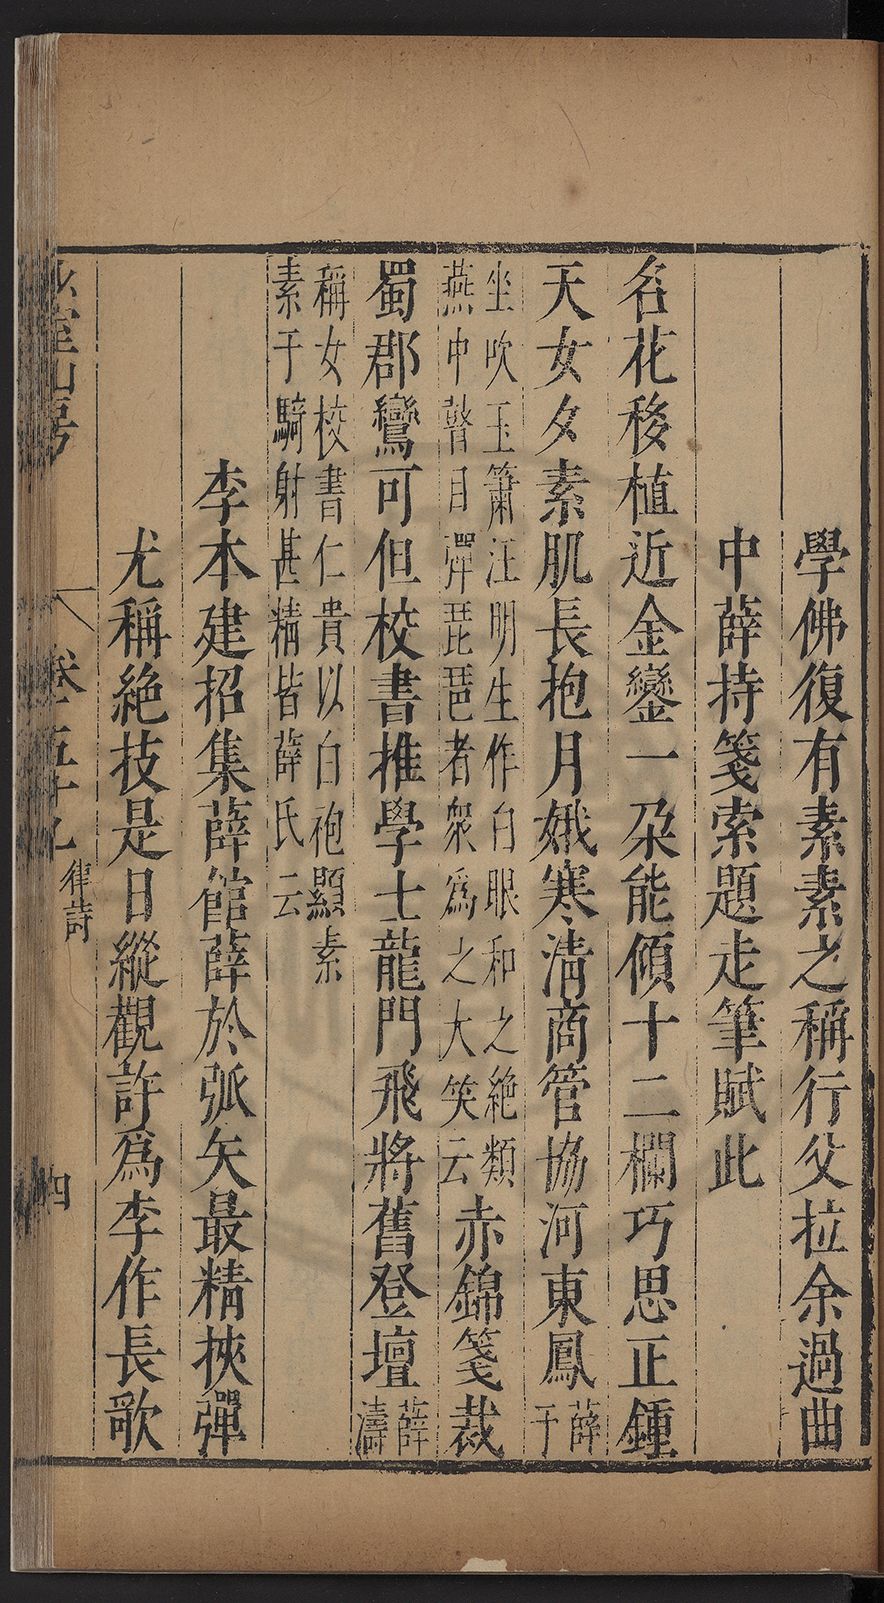 學佛復有素素之稱行父拉余過曲
中薛持箋索題走筆賦此
名花移植近金鑾一朶能傾十二欄巧思正鍾
天女夕素肌長抱月娥寒清商管協河東鳳薛于
坐吹玉簫汪明生作白眼和之絶類
燕中瞽目彈琵琶者衆爲之大笑云
赤錦箋裁
蜀郡鸞可但校書推學士龍門飛將舊登壇薛濤
稱女校書仁貴以白袍顯素
素于騎射甚精皆薛氏云
李本建招集薛館薛於弧矢最精挾彈
尤稱絶技是日縱觀許爲李作長歌
少室山房 卷五十九 律詩 四